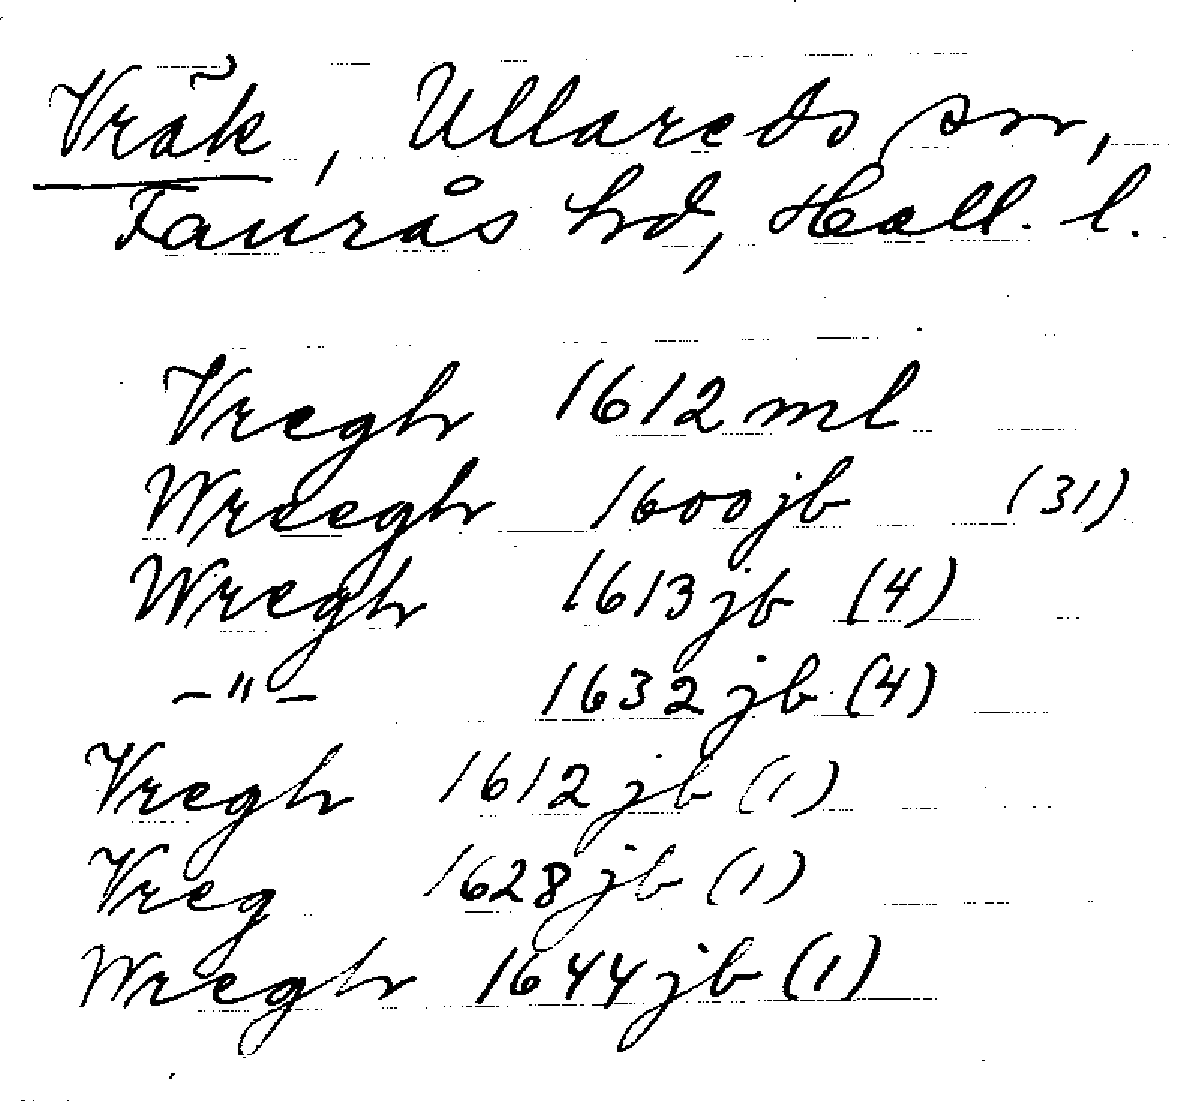 Vräk, Ullareds sn,
Faurås hd, Hall. l.
Vregh 1612 ml
Wreegh 1600 jb (31)
Wregh 1613 jb (4)
—"— 1632 jb (4)
Vregh 1612 jb (1)
Vreg 1628 jb (1)
Wregh 1644 jb (1)